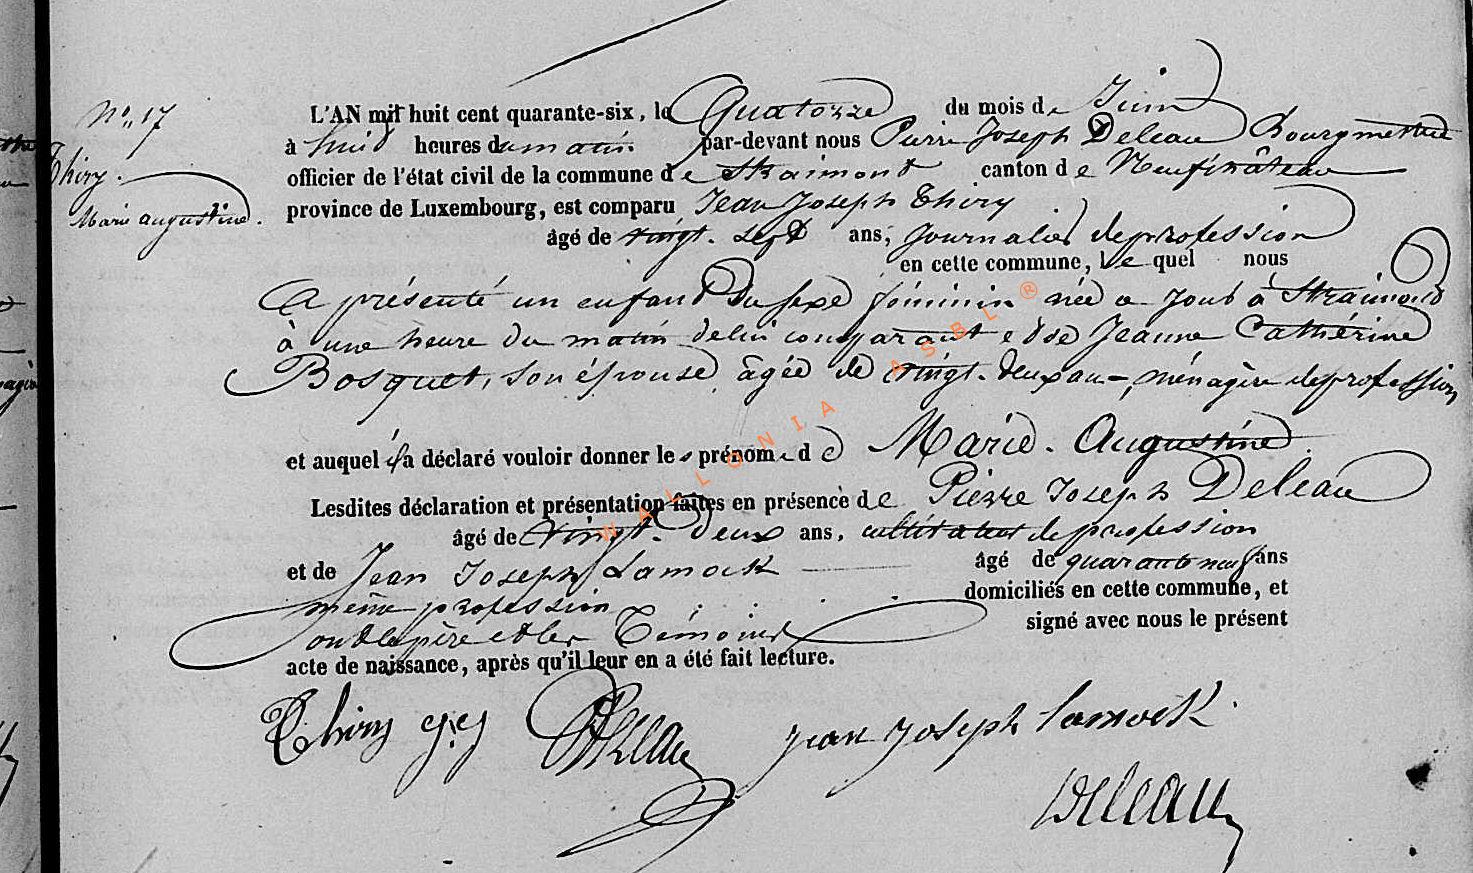 N° 17
Thiry
Marie augustine.
L'AN mil huit cent quarante-six, le Quatorze du mois de Juin
à huit heures du matin par-devant nous Pierre Joseph Deleau Bourgmestre
officier de l'état civil de la commune de Straimont canton de Neufchâteau
province de Luxembourg, est comparu Jean Joseph Thiry
âgé de vingt-sept ans, journalier de profession
en cette commune, lequel nous
A présenté un enfant du sexe féminin née ce jour à Straimont
à une heure du matin de lui comparant et de Jeanne Cathérine
Bosquet, son épouse, âgée de vingt-deux ans, ménagère de profession
et auquel il a déclaré vouloir donner les prénoms de Marie-Augustine.
Lesdites déclaration et présentation faites en présence de Pierre Joseph Deleau
âgé de vingt-deux ans, cultivateur de profession
et de Jean Joseph Lamock âgé de quarante neuf ans
même profession domiciliés en cette commune, et
ont le père et les Témoins signé avec nous le présent
acte de naissance, après qu'il leur en a été fait lecture.
Thiry j. j. Jean Joseph Lamock
Deleau
WALLONIA ASBL ®